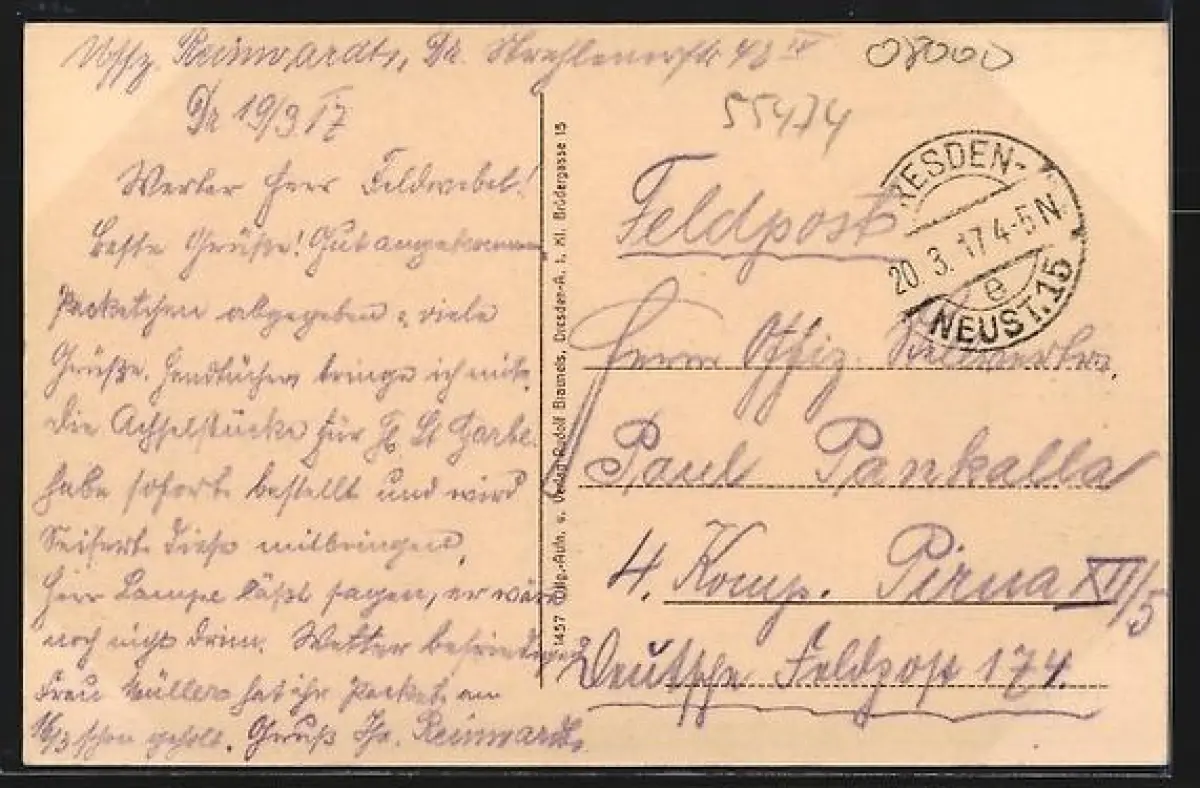 Uffz. Reinwardt, Dr. Strehlenerstr 42 IV
Dr 19/3 17
Werter Herr Feldwebel!
Beste Grüße! Gut angekommen
Packetchen abgegeben u. viele
Grüße. Handtücher bringe ich mit.
Die Achselstücke für H. Lt
habe sofort bestellt und wird
Seifert diese mitbringen,
Herr Lampe läßt sagen, er wäre
noch nicht drin. Wetter befriedigend
Frau Müller hat ihr Packet am
16/3 schon geholt. Gruß Ihr. Reinwardt.
1457 Orig.-Aufn. u. Verlag Rudolf Brauneis, Dresden-A. 1, Kl. Brüdergasse 15
08000
55474
RESDEN-
20. 3. 17. 4-5 N.
e
NEUST. 15
Feldpost
Herrn Offiz.
Paul Pankalla
4. Komp. Pirna XII/5
Deutsche Feldpost 174.